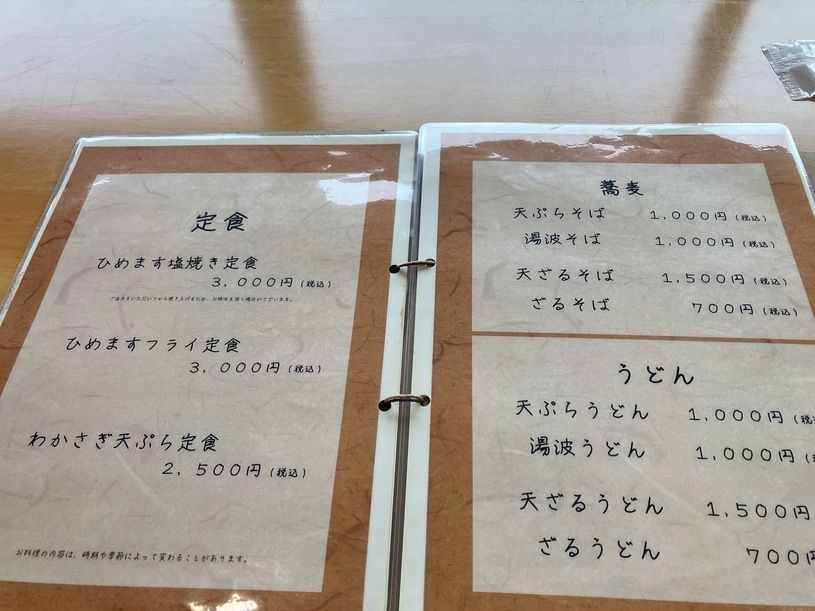 定食
ひめます塩焼き定食
3,000円(税込)
ご注文をいただいてから焼き上げるため、お時間を頂く場合がございます。
ひめますフライ定食
3,000円(税込)
わかさぎ天ぷら定食
2,500円(税込)
お料理の内容は、時期や季節によって変わることがあります。
蕎麦
天ぷらそば 1,000円(税込)
湯波そば 1,000円(税込)
天ざるそば 1,500円(税込)
ざるそば 700円(税込)
うどん
天ぷらうどん 1,000円(税
湯波うどん 1,000円(
天ざるうどん 1,500円
ざるうどん 700円